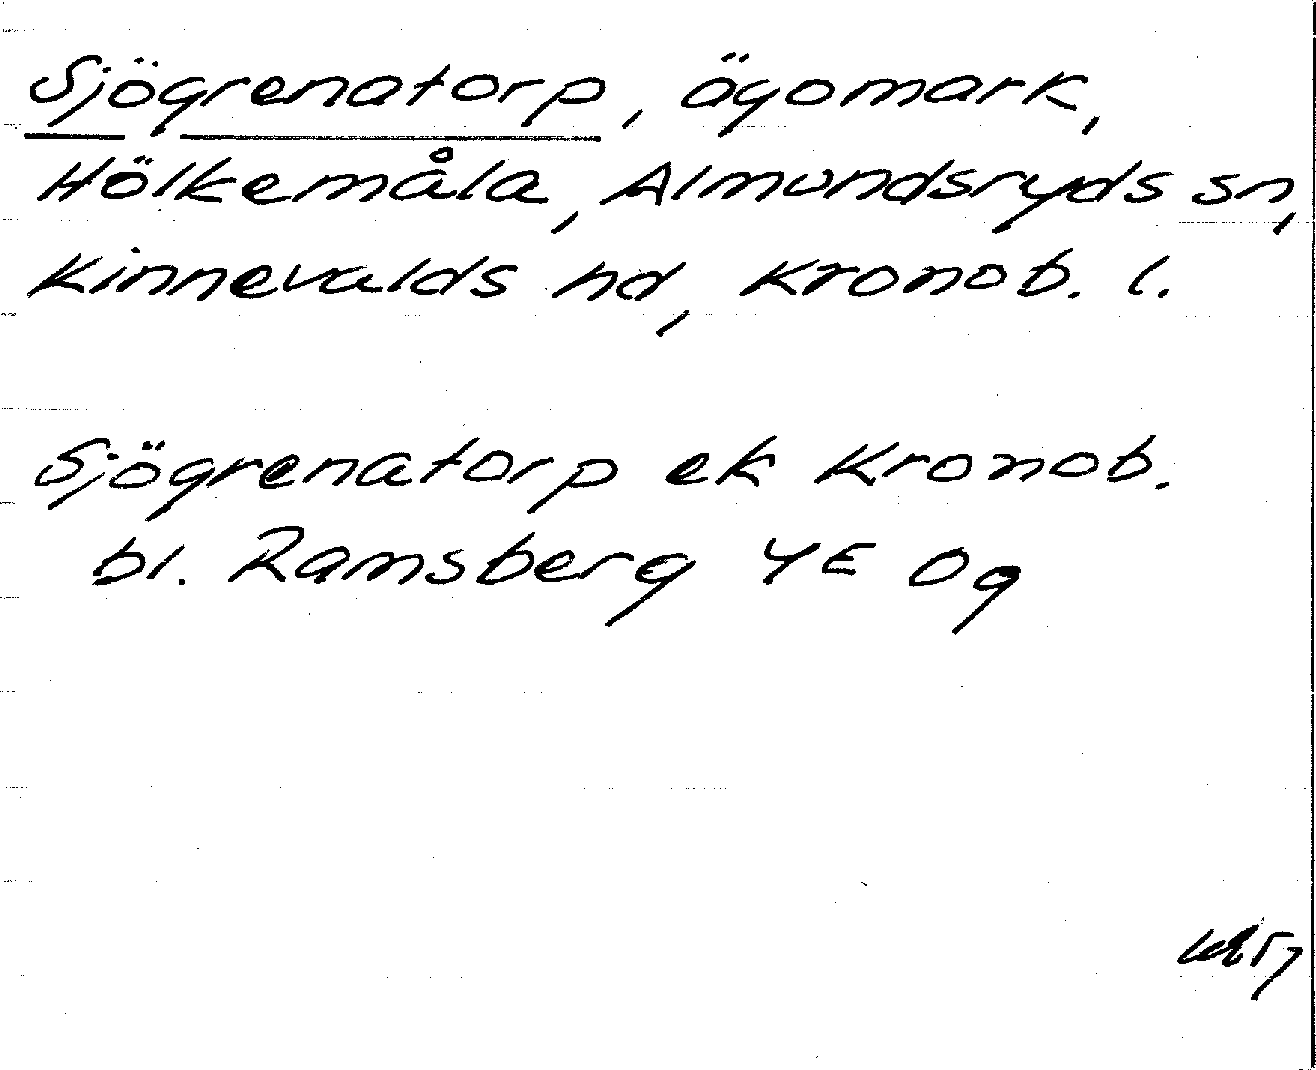 Sjögrenatorp, ägomark,
Hölkemåla, Almundsryds sn,
Kinnevalds hd, Kronob. l.
Sjögrenatorp ek Kronob.
bl. Ramsberg 4E 0g